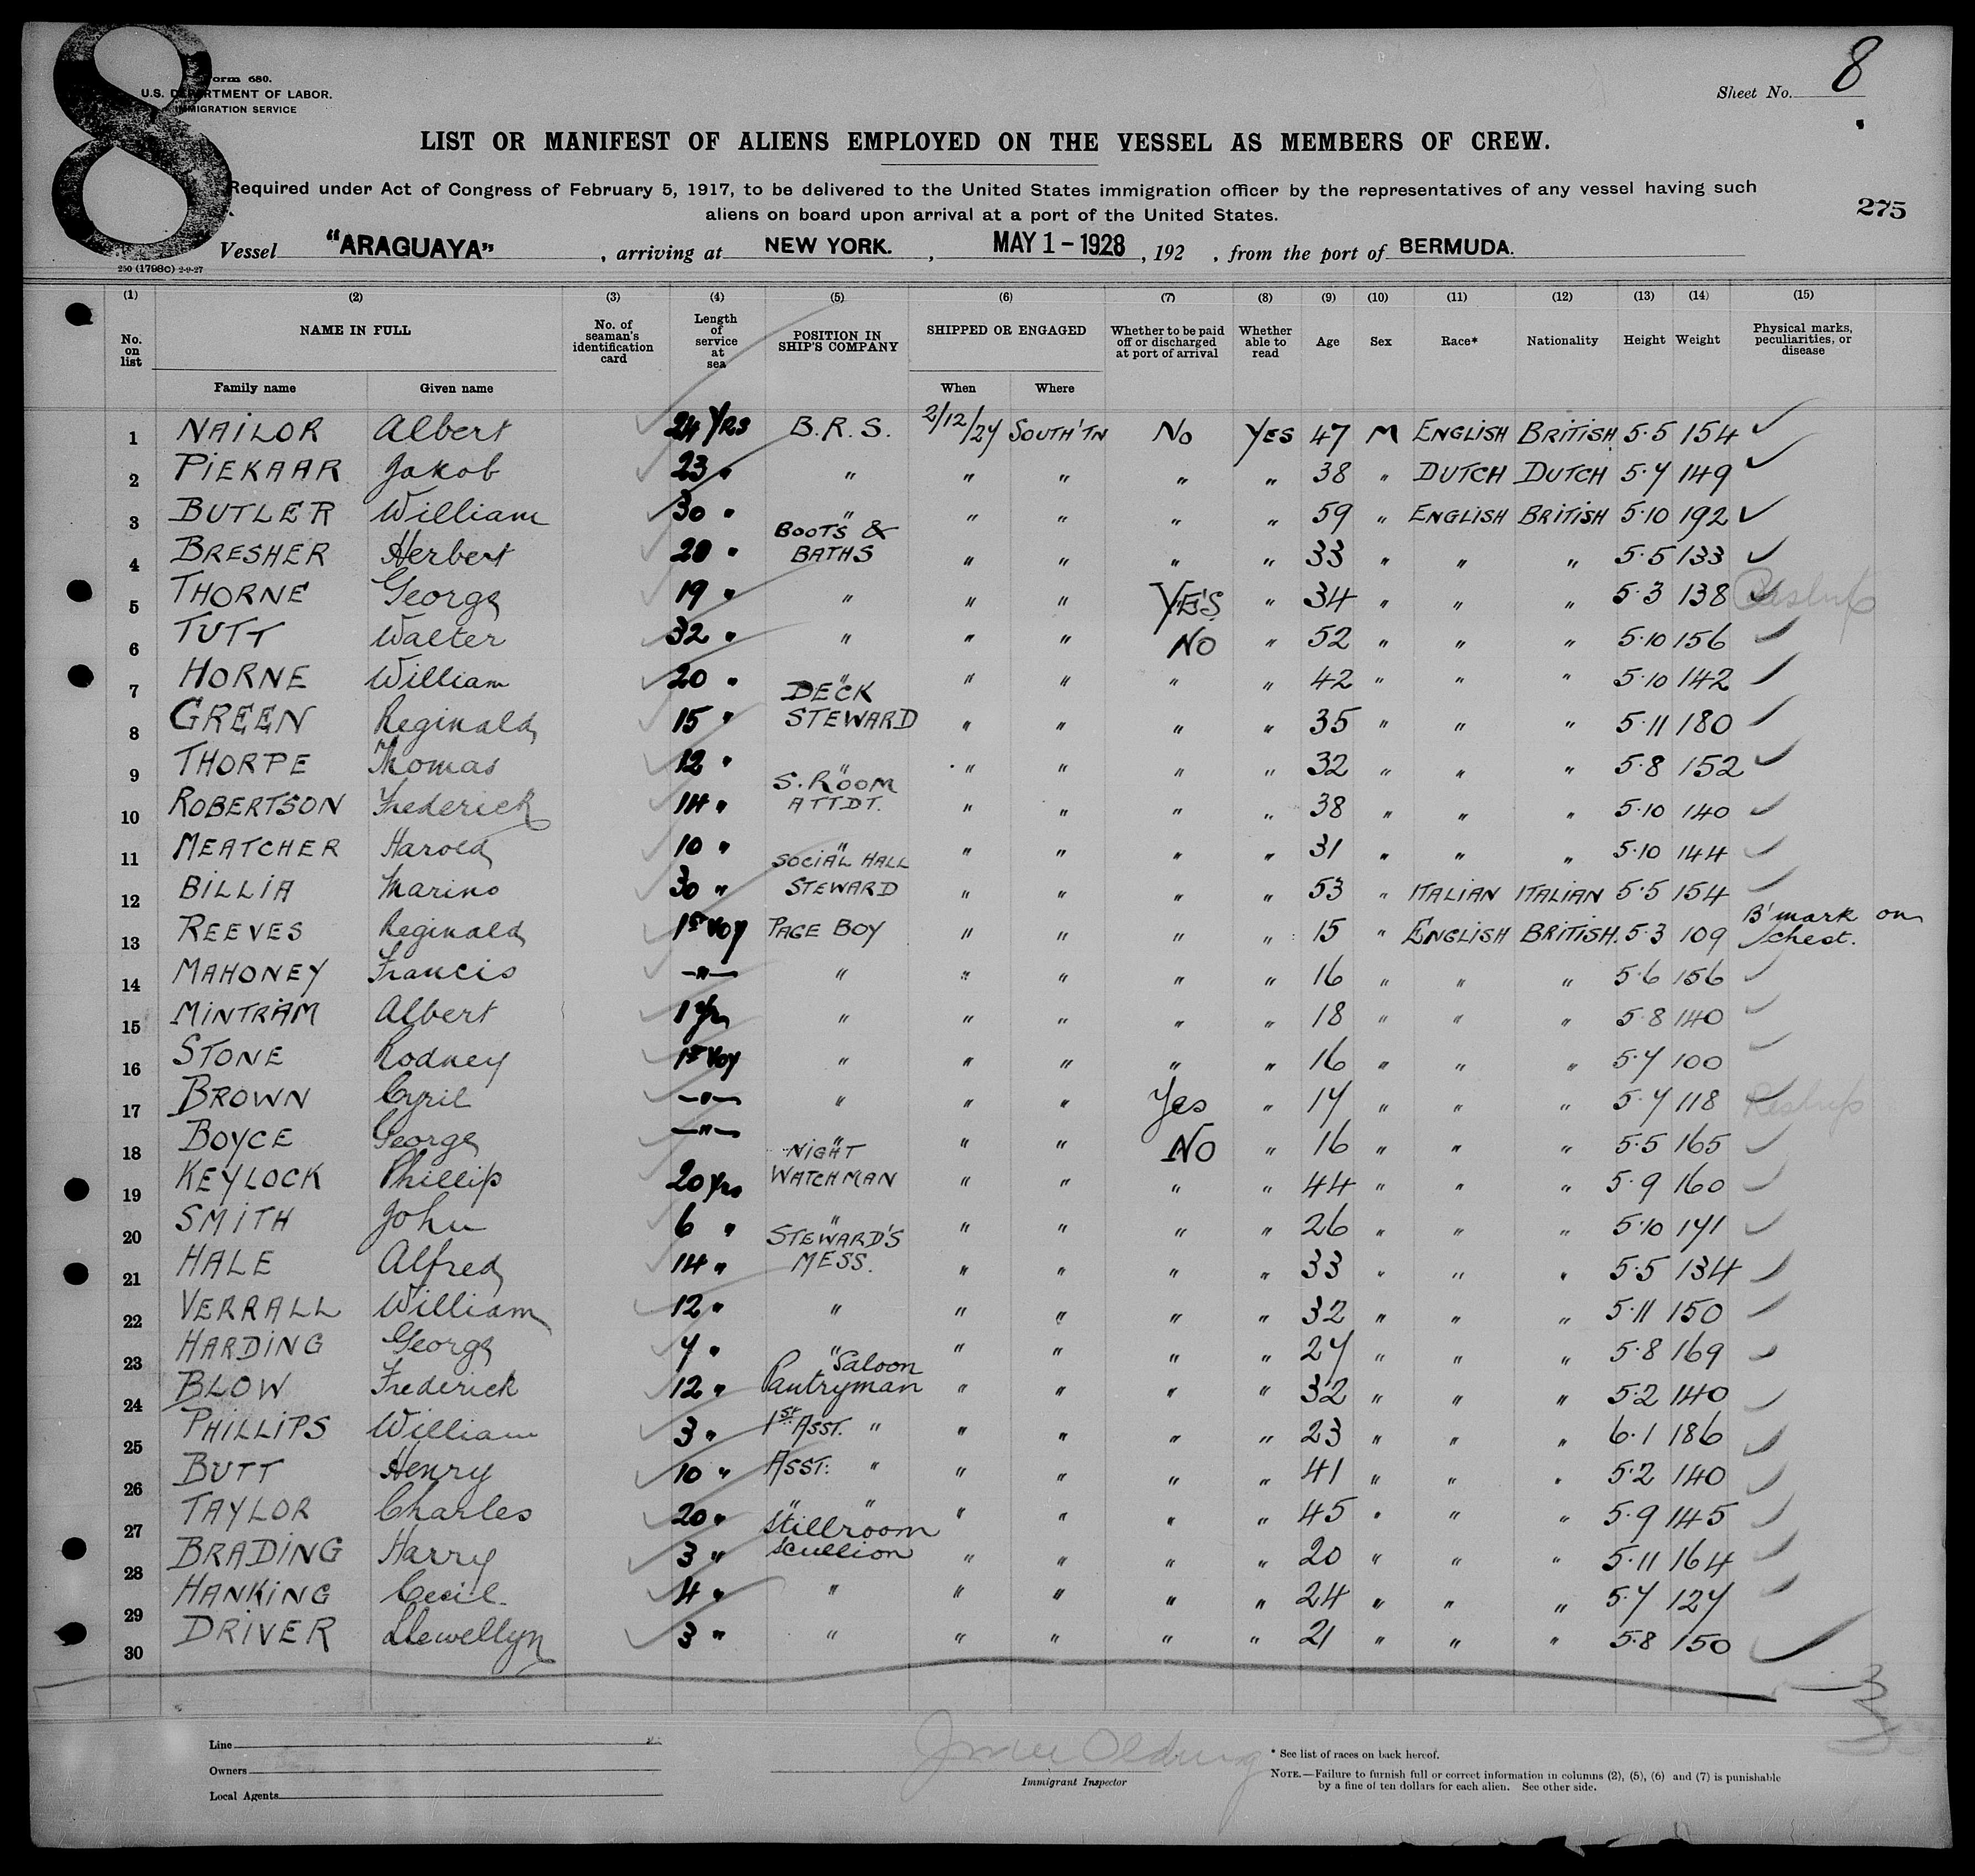 8
Form 680.
U.S. DEPARTMENT OF LABOR.
IMMIGRATION SERVICE
Sheet No. 8
LIST OR MANIFEST OF ALIENS EMPLOYED ON THE VESSEL AS MEMBERS OF CREW.
Required under Act of Congress of February 5, 1917, to be delivered to the United States immigration officer by the representatives of any vessel having such
aliens on board upon arrival at a port of the United States.
275
Vessel "ARAGUAYA" , arriving at NEW YORK. , MAY 1 - 1928 , 192 , from the port of BERMUDA.
250 (1798C) 2-9-27
(1) (2) (3) (4) (5) (6) (7) (8) (9) (10) (11) (12) (13) (14) (15)
No. on list NAME IN FULL No. of seaman's identification card Length of service at sea POSITION IN SHIP'S COMPANY SHIPPED OR ENGAGED Whether to be paid off or discharged at port of arrival Whether able to read Age Sex Race* Nationality Height Weight Physical marks, peculiarities, or disease
Family name Given name When Where
1 NAILOR Albert 24 YRS B.R.S. 2/12/27 SOUTH'TN No YES 47 M ENGLISH BRITISH 5.5 154
2 PIEKAAR Jakob 23 " " " " " " 38 " DUTCH DUTCH 5.7 149
3 BUTLER William 30 " " " " " " 59 " ENGLISH BRITISH 5.10 192
4 BRESHER Herbert 20 " BOOTS & BATHS " " " " 33 " " " 5.5 133
5 THORNE George 19 " " " " YES " 34 " " " 5.3 138
6 TUTT Walter 32 " " " " NO " 52 " " " 5.10 156
7 HORNE William 20 " " " " " " 42 " " " 5.10 142
8 GREEN Reginald 15 " DECK STEWARD " " " " 35 " " " 5.11 180
9 THORPE Thomas 12 " " " " " " 32 " " " 5.8 152
10 ROBERTSON Frederick 14 " S. ROOM ATTDT. " " " " 38 " " " 5.10 140
11 MEATCHER Harold 10 " " " " " " 31 " " " 5.10 144
12 BILLIA Marino 30 " SOCIAL HALL STEWARD " " " " 53 " ITALIAN ITALIAN 5.5 154
13 REEVES Reginald 1st Voy PAGE BOY " " " " 15 " ENGLISH BRITISH. 5.3 109 B'mark on chest.
14 MAHONEY Francis —"— " " " " " 16 " " " 5.6 156
15 MINTRAM Albert 1 yr " " " " " 18 " " " 5.8 140
16 STONE Rodney 1st Voy " " " " " 16 " " " 5.7 100
17 BROWN Cyril —"— " " " Yes " 17 " " " 5.7 118
18 BOYCE George —"— " " " NO " 16 " " " 5.5 165
19 KEYLOCK Phillip 20 yrs NIGHT WATCHMAN " " " " 44 " " " 5.9 160
20 SMITH John 6 " " " " " " 26 " " " 5.10 171
21 HALE Alfred 14 " STEWARD'S MESS. " " " " 33 " " " 5.5 134
22 VERRALL William 12 " " " " " " 32 " " " 5.11 150
23 HARDING George 7 " " " " " " 27 " " " 5.8 169
24 BLOW Frederick 12 " Saloon Pantryman " " " " 32 " " " 5.2 140
25 PHILLIPS William 3 " 1st ASST. " " " " " 23 " " " 6.1 186
26 BUTT Henry 10 " ASST: " " " " " 41 " " " 5.2 140
27 TAYLOR Charles 20 " " " " " " " 45 " " " 5.9 145
28 BRADING Harry 3 " Stillroom Scullion " " " " 20 " " " 5.11 164
29 HANKING Cecil. 4 " " " " " " 24 " " " 5.7 127
30 DRIVER Llewellyn 3 " " " " " " 21 " " " 5.8 150
Line
Owners
Local Agents
Immigrant Inspector
* See list of races on back hereof.
NOTE.—Failure to furnish full or correct information in columns (2), (5), (6) and (7) is punishable
by a fine of ten dollars for each alien. See other side.